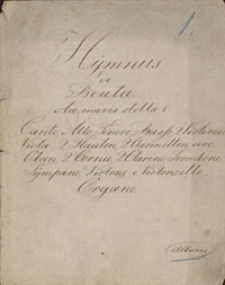 1.
Hymnus
de
Beata
Ave maris stella
Canto, Alto, Tenore, Basso, 2 Violinis
Viola, 2 Flauten, 2 Clarinetten ove
Oboen, 2 Cornu, 2 Clarini, Trombone
Tympano, Violone e Violonzello
Organo.